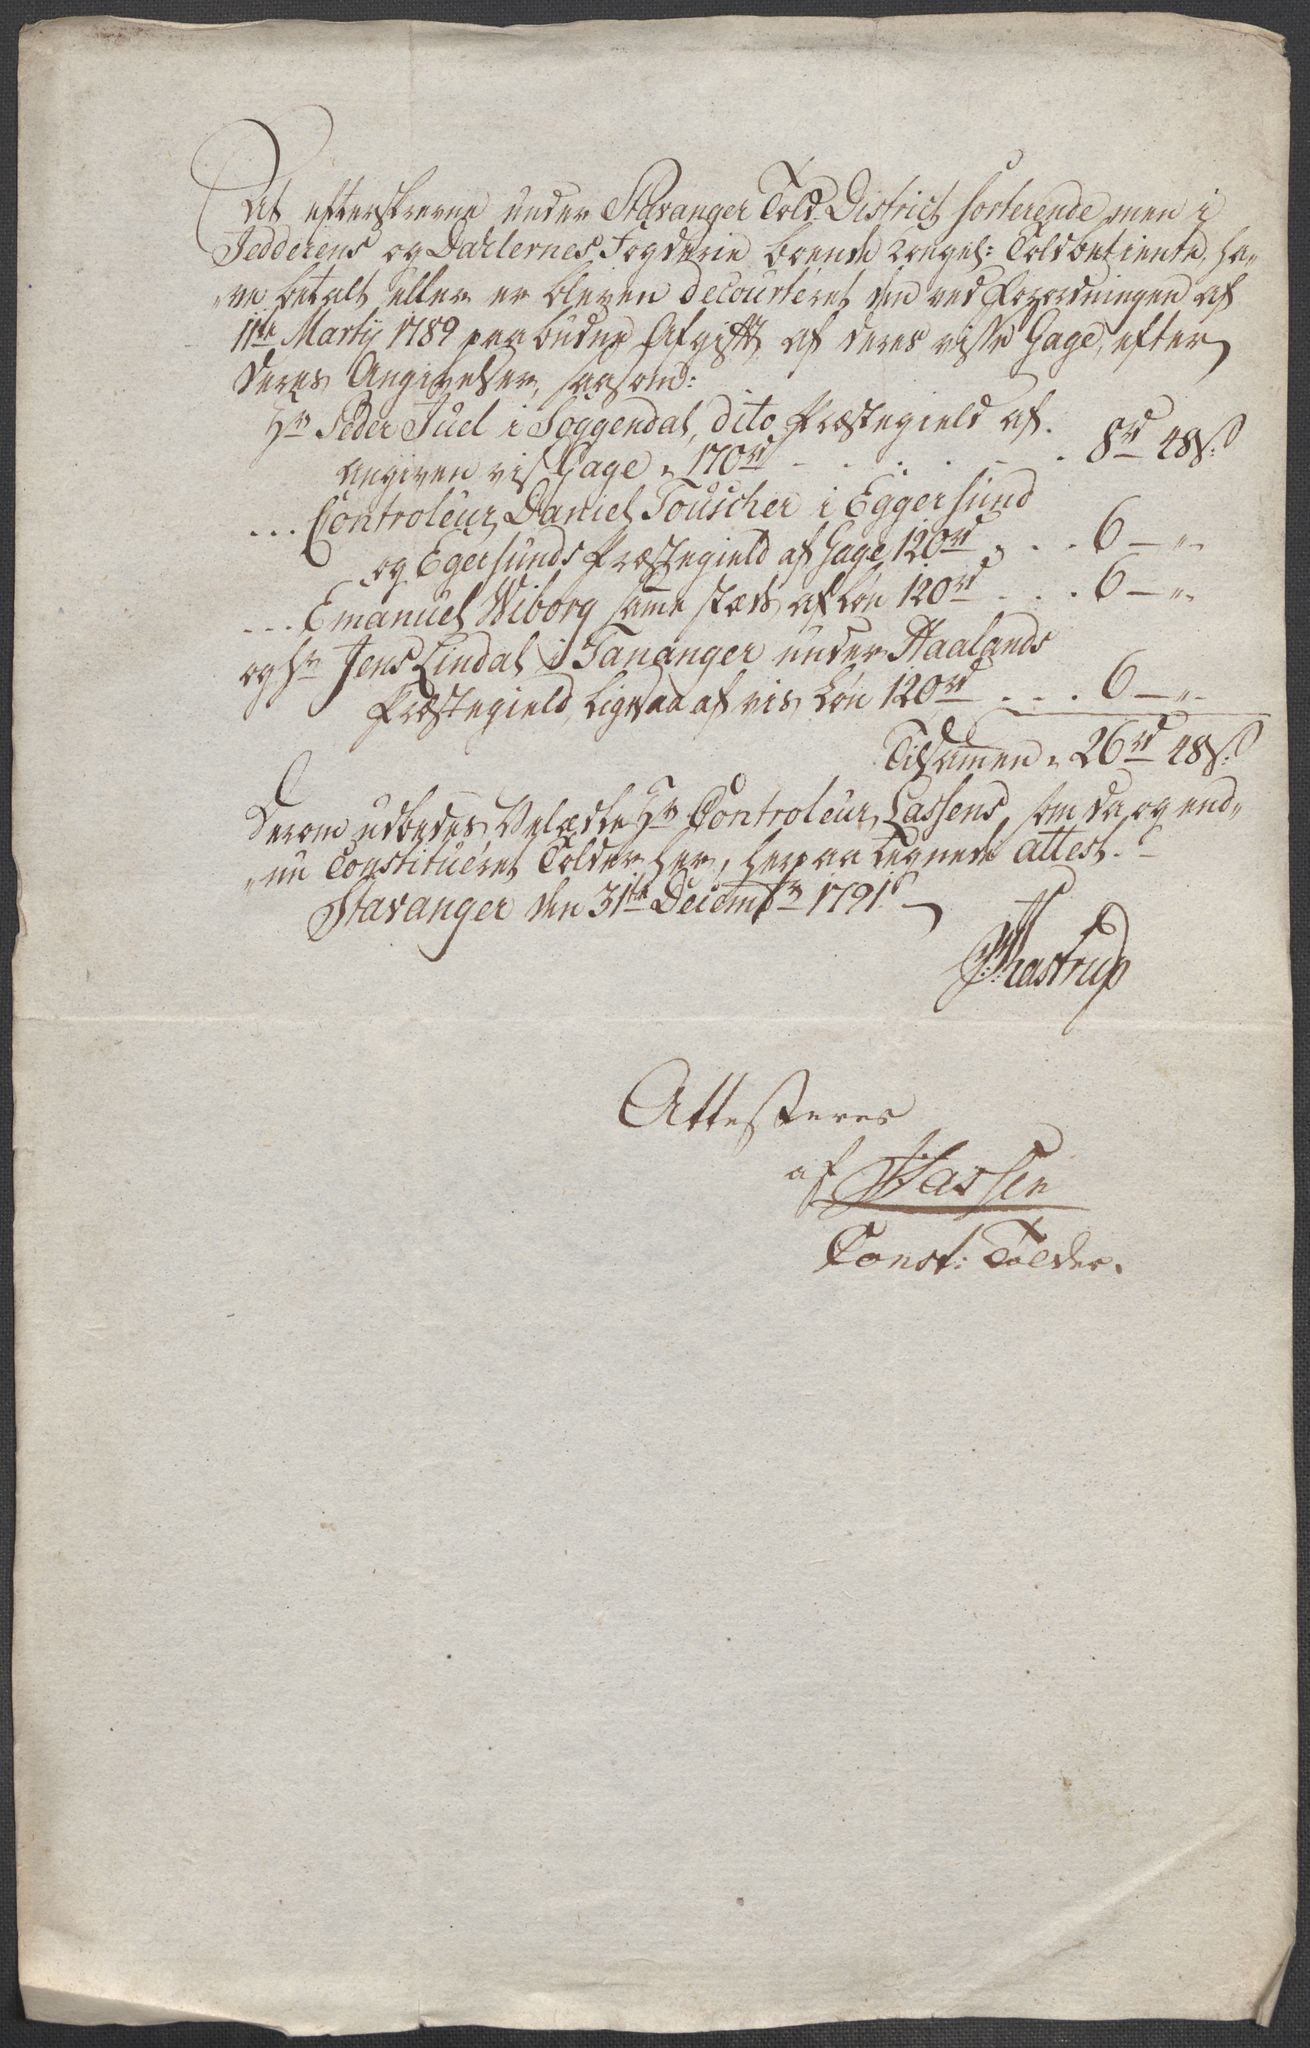 At efterskrevne under Stavanger Told District sorterende, men i
Jedderens og Dahlernes Fogderie boende kongel: Toldbetiente, ha„
„ve betalt eller er bleven decourteret den ved Forordningen af
11te Martij 1789 paabudne Afgift af deres visse Gage, efter
deres Angivelser, saasom:
Hr Peder Juel i Soggendal, dito Præstegield af
angiven vis Gage „ 170rd . . . . . . 8rd 48ß:
... Controleur Daniel Touscher i Eggersund
og Egersunds Præstegield af Gage 120rd . . . 6 — „-
... Emanuel Wiborg samme stæds af Løn 120rd . . . 6 — „-
og Hr Jens Lindal i Tananger under Haalands
Præstegield, ligesaa af vis Løn 120rd . . . 6 — „-
Tilsammen „ 26rd 48ß:
Derom udbedes Velædle Hr Controleur Lassens, som da og end„
„nu Constitueret Tolder her, herpaa tegnede Attest.
Stavanger den 31te Decembr 1791
Kastrup
Attesteres
af Lassen
Const: Tolder.